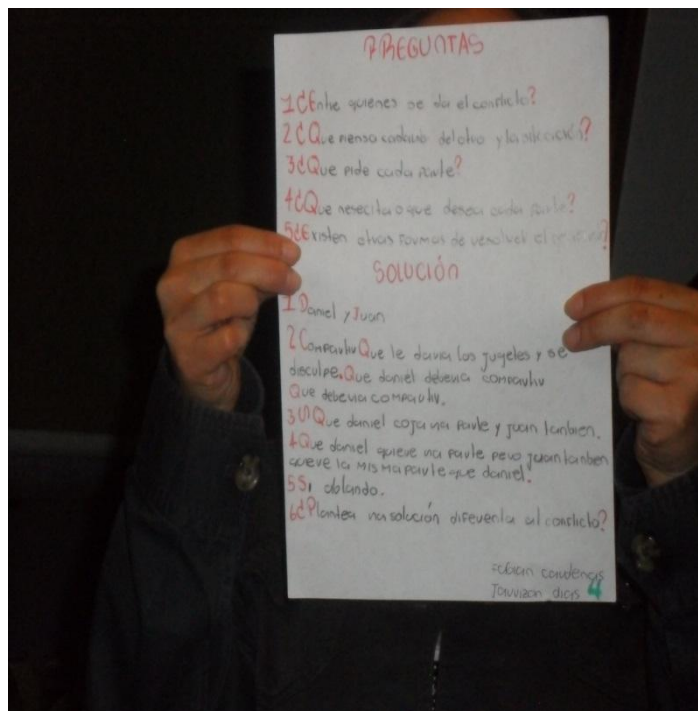 PREGUNTAS
1¿Entre quienes se da el conflicto?
2¿Que piensa cada uno del otro y la situación?
3¿Que pide cada parte?
4¿Que nesecita o que desea cada parte?
5¿Existen otras formas de resolver el?
SOLUCIÓN
1 Daniel y Juan
2 Compartir Que le daria los jugetes y se
disculpe. Que daniel deberia compartir
Que deberia compartir.
3 Que daniel coja una parte y juan tanbien.
4 Que daniel quiere una parte pero juan tanbien
quiere la misma parte que daniel.
5 Si, ablando.
6¿Plantea una solución diferente al conflicto?
Fabian
4